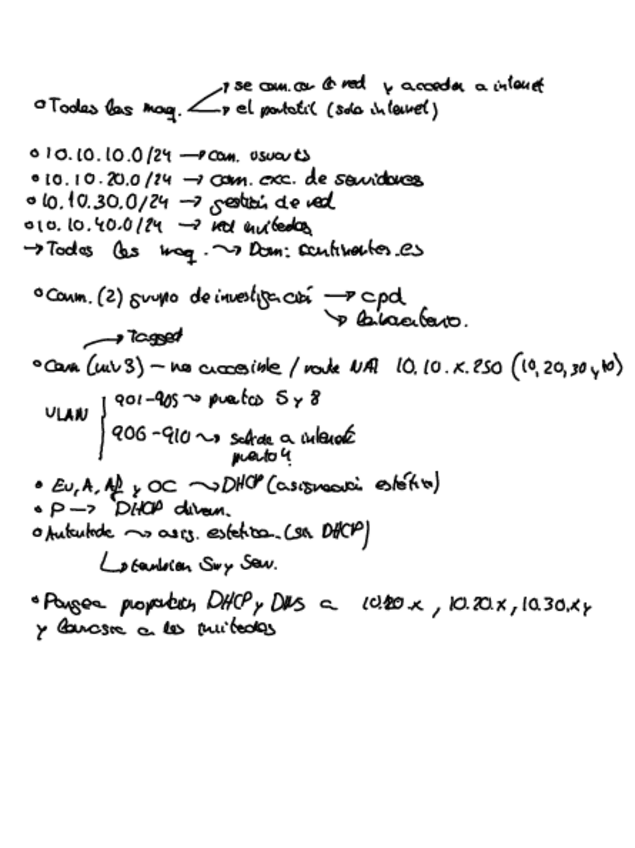 → se com. con la red y acceder a internet
o Todas las maq. → el portatil (solo internet)
o 10.10.10.0/24 → com. usuarios
o 10.10.20.0/24 → com. exc. de servidores
o 10.10.30.0/24 → gestión de red
o 10.10.40.0/24 → red invitados
→ Todas las maq. ~> Dom: continentes.es
o Conm. (2) grupo de investigación → cpd
↘ laboratorio.
→ Tagged
o Conm (niv 3) – no accesible / route NAT 10.10.x.250 (10, 20, 30 y 40)
VLAN 901-905 ~> puertos 5 y 8
906-910 ~> salida a internet
puerto 4.
o Eu, A, Af y OC ~> DHCP (asignación estática)
o P → DHCP dinam.
o Antartida ~> asig. estatica. (sin DHCP)
↳ tambien Sw y Serv.
o Pangea proporciona DHCP y DNS a 10.10.x, 10.20.x, 10.30.x y
y a los invitados